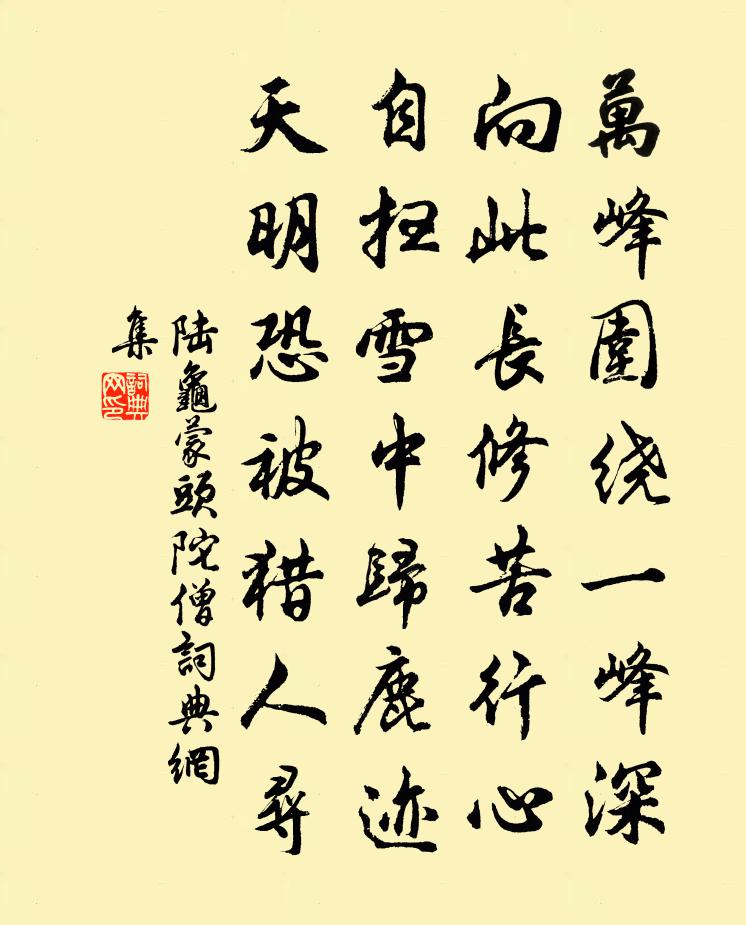 萬峰圍绕一峰深
向此長修苦行心
自扫雪中歸鹿迹
天明恐被猎人尋
陆龜蒙頭陀僧詞典網
集
詞典
网印